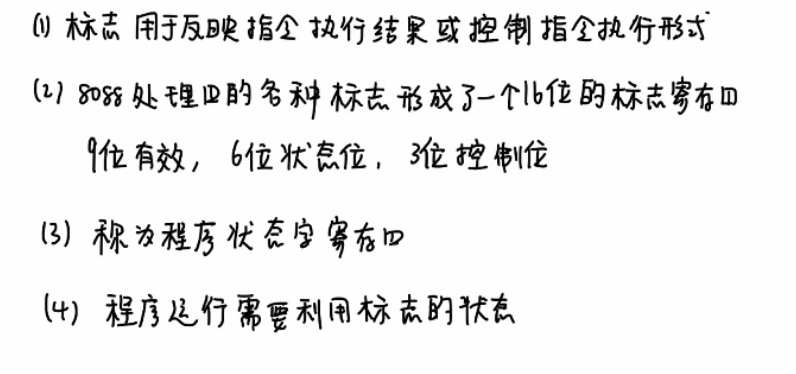 (1) 标志 用于反映指令执行结果或控制指令执行形式
(2) 8088处理四的各种标志形成了一个16位的标志寄存四
9位有效，6位状态位，3位控制位
(3) 称为程序状态字寄存四
(4) 程序运行需要利用标志的状态